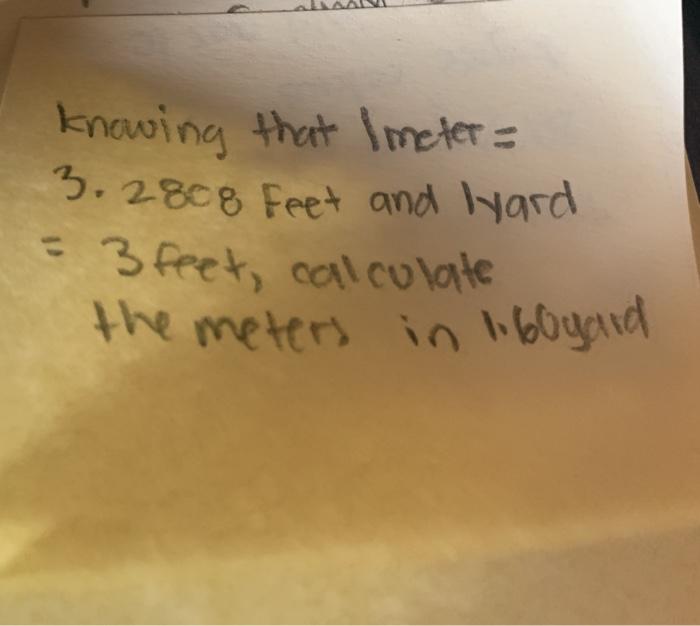 knowing that 1 meter =
3.2808 Feet and 1yard
= 3 feet, calculate
the meters in 1.60yard